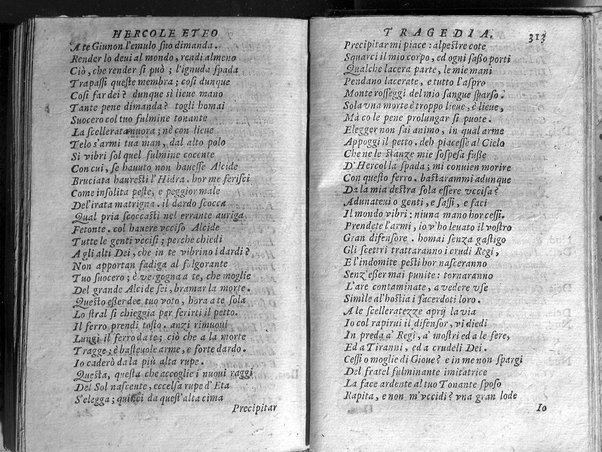 HERCOLE ETEO
A te Giunon l'emulo suo dimanda.
Render lo deui al mondo, rendi almeno
Ciò, che render si può; l'ignuda spada
Trapassi queste membra; così dunque
Così far dei? dunque sì lieue mano
Tante pene dimanda? togli homai
Suocero col tuo fulmine tonante
La scellerata nuora; nè con lieue
Telo s'armi tua man, dal alto polo
Si vibri sol quel fulmine cocente
Con cui, se hauuto non hauesse Alcide
Bruciata hauresti l'Hidra. hor me ferisci
Come insolita peste, e peggior male
Del'irata matrigna. il dardo scocca
Qual pria scoccasti nel errante auriga
Fetonte. col hauere vcciso Alcide
Tutte le genti vccisi; perche chiedi
A gli alti Dei, che in te vibrino i dardi?
Non apportan fadiga al folgorante
Tuo suocero; è vergogna a te, che moglie
Del grande Alcide sei, bramar la morte.
Questo esser dee tuo voto, hora a te sola
Lo stral si chieggia per ferirti il petto.
Il ferro prendi tosto. anzi rimuoui
Lungi il ferro da te; ciò che a la morte
Tragge; è basteuole arme, e forte dardo.
Io caderò da la più alta rupe.
Questa, questa che accoglie i nuoui raggi
Del Sol nascente, eccelsa rupe d'Eta
S'elegga; quinci da quest'alta cima
Precipitar
TRAGEDIA. 313
Precipitarmi piace: alpestre cote
Squarci il mio corpo, ed ogni sasso porti
Qualche lacera parte, le mie mani
Pendano lacerate, e tutto l'aspro
Monte rosseggi del mio sangue sparso.
Sola vna morte è troppo lieue, è lieue,
Ma co le pene prolungar si puote.
Elegger non sai animo, in qual arme
Appoggi il petto. deh piacesse al Cielo
Che ne le stanze mie sospesa fusse
D'Hercol la spada; mi conuien morire
Con questo ferro. bastarammi adunque
Da la mia destra sola essere vccisa?
Adunateui o genti, e sassi, e faci
Il mondo vibri; niuna mano hor cessi.
Prendete l'armi, io v'ho leuato il vostro
Gran difensore. homai senza gastigo
Gli scettri trattaranno i crudi Regi,
E l'indomite pesti hor nasceranno
Senz'esser mai punite: tornaranno
L'are contaminate, a vedere vse
Simile al'hostia i sacerdoti loro.
A le sceleratezze aprij la via
Io col rapirui il difensor, vi diedi
In preda a' Regi, a' mostri ed a le fere,
Ed a Tiranni, ed a crudeli Dei.
Cessi o moglie di Gioue? e in me non spargi
Del fratel fulminante imitatrice
La face ardente al tuo Tonante sposo
Rapita, e non m'vccidi? vna gran lode
Io